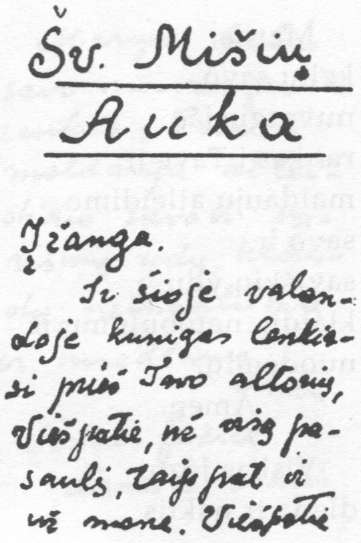 Šv. Mišių
Auka
Įžanga.
Ir šioje valan-
doje kunigas lenkia-
si prieš Tavo altorių,
Viešpatie, už visą pa-
saulį, taip pat ir
už mane. Viešpatie